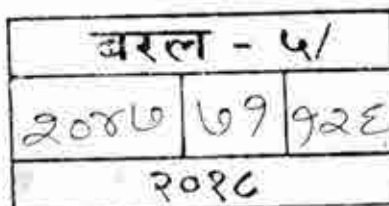 बरल - ५/
२०४७ ७१ १२६
२०१८